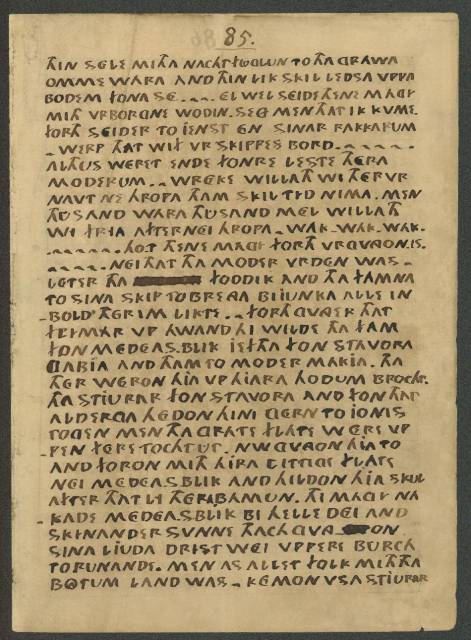 85.
THIN SELE MITHA NACHTFVGLUN TO THA GRAWA
OMME WARA AND THIN LIK SKIL LEDSA VPPA
BODEM FONA SE. _ _ _ EL WEL SEIDE THENE MAGI
MITH VRBORGNE WODIN. SEG MEN THAT IK KVME.
FORTH SEIDER TO IENST EN SINAR RAKKARUM
_ WERP THAT WIF VR SKIPPES BORD. _ _ _ _ _
ALTHUS WERET ENDE FONRE LESTE THERA
MODERUM. _ _ WREKE WILLATH WI THER VR
NAVT NE HROPA THAM SKIL TID NIMA. MEN
THUSAND WARA THUSAND MEL WILLATH
WI FRIA AFTERNEI HROPA _ WAK_WAK_WAK.
_ _ _ _ _ _ _ HO.T THENE MAGI FORTH VRGVNGON.IS.
_ _ _ _ _ NEI THAT THA MODER VRDEN WAS _
LETER THA FODDIK AND THA FAMNA
TO SINA SKIP TOBRENGA BIIUNKA ALLE IN
_BOLD THER IM LIKTE. _ _ FORTH GVNGER THAT
FLIMAR VP HWAND HI WILDE THA FAM
FON MEDEAS.BLIK IEFTHA FON STAVORA
GABIA AND THAM TO MODER MAKIA. THA
THER WERON HIA VP HIARA HODUM BROCHT.
THA STIURAR FON STAVORA AND FON THAT
ALDERGA HEDON HINI GERN TO IONIS
TOGEN MEN THA GRATE FLATE WERE VP
_PEN FERE TOCHT UT. NW GVNGON HIA TO
AND FORON MITH HIRA LITTIGE FLATE
NEI MEDEAS.BLIK AND HILDON HIA SKUL
AFTER THAT LI THERA BAMUN. THI MAGI NA
_KADE MEDEAS.BLIK BI HELLE DEI AND
SKINANDER SVNNE THACH GVNG ON
SINA LIUDA DRIST WEI VPPERE BURCH
TORUNANDE. MEN AS ALLET FOLK MITH THA
BOTUM LAND WAS _ KEMON VSA STIURAR